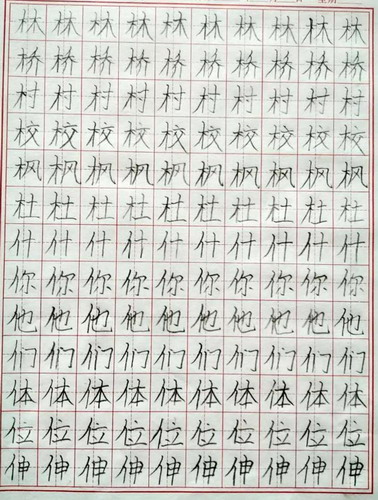 林林林林林林林林林林
桥桥桥桥桥桥桥桥桥桥
村村村村村村村村村村
校校校校校校校校校校
枫枫枫枫枫枫枫枫枫枫
杜杜杜杜杜杜杜杜杜杜
什什什什什什什什什什
你你你你你你你你你你
他他他他他他他他他他
们们们们们们们们们们
体体体体体体体体体体
位位位位位位位位位位
伸伸伸伸伸伸伸伸伸伸